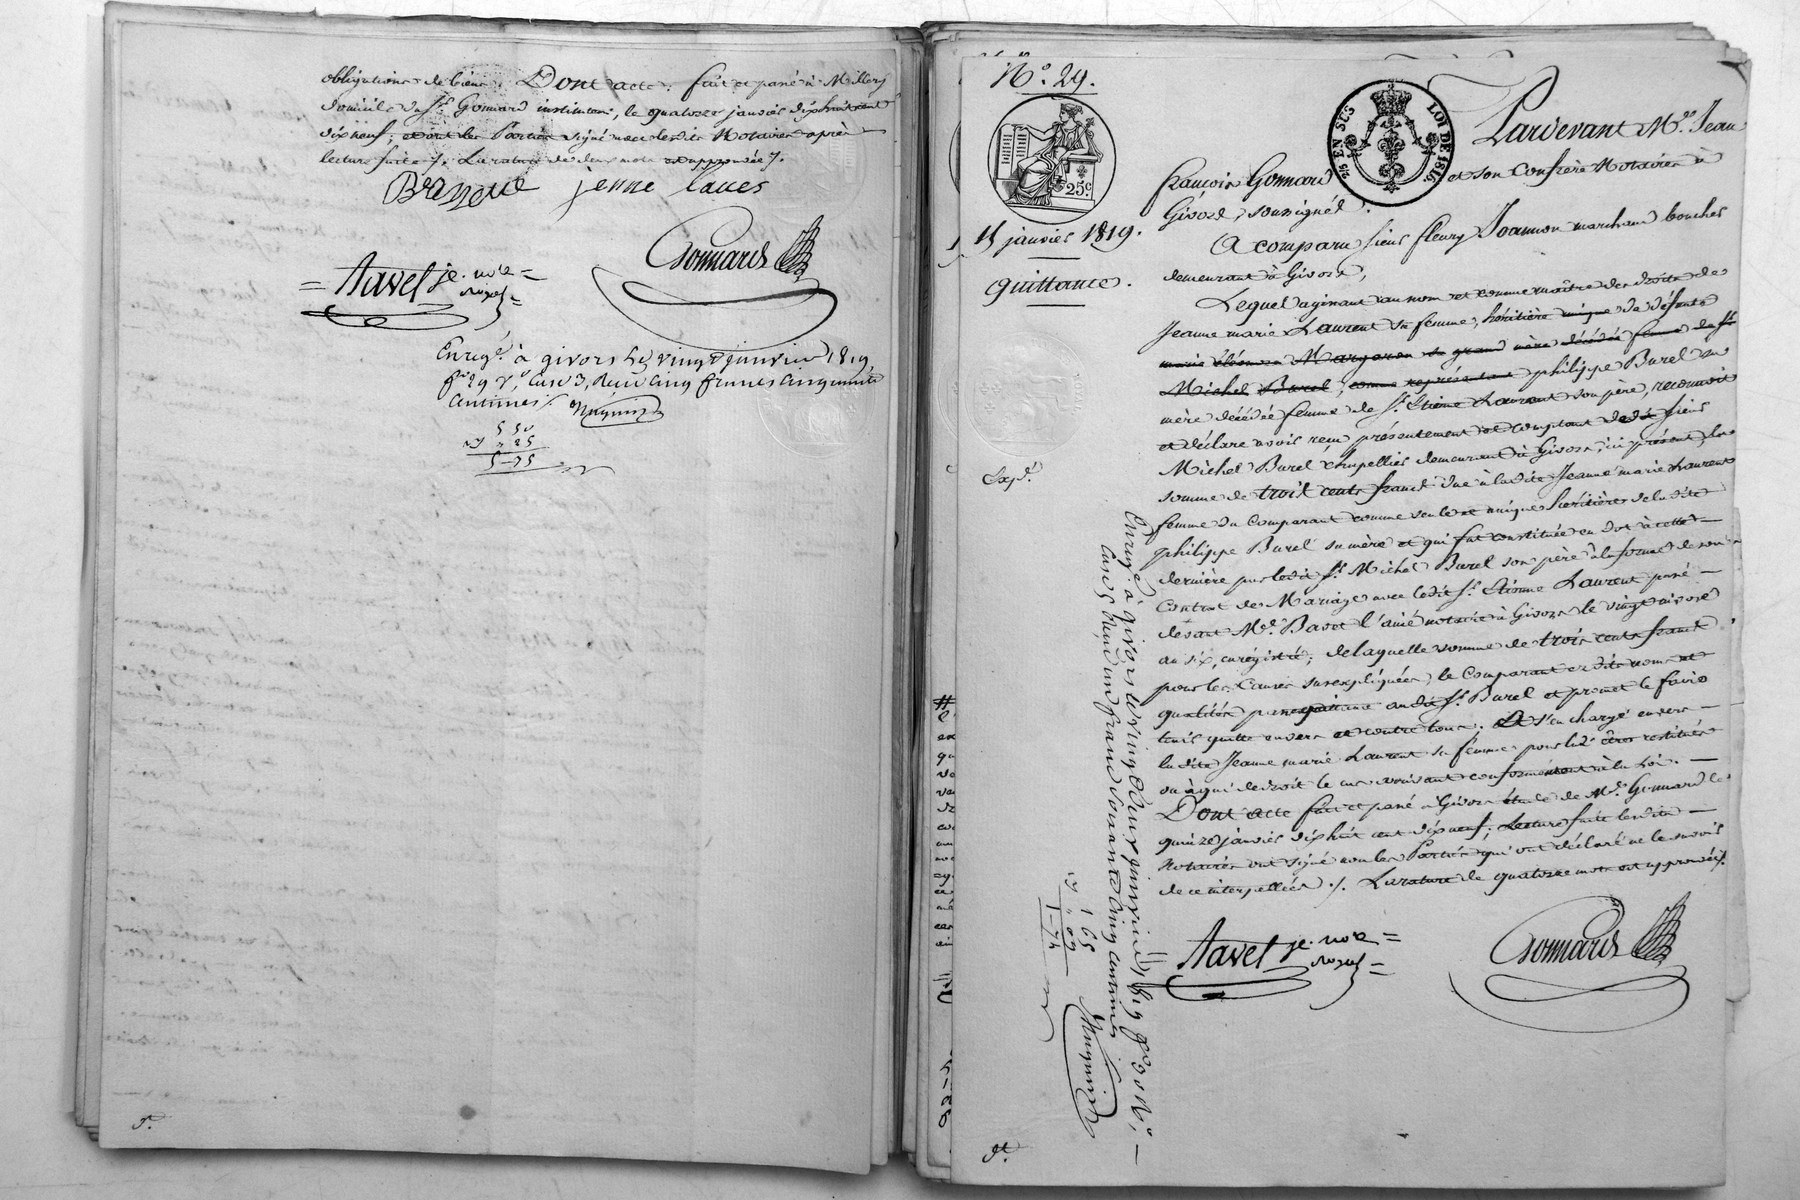 obligations de biens. Dont acte, fait et passé à Millery
domicile du Sr. Gonnard instituteur, le quatorze janvier dix huit cent
dix neuf, et ont les Parties signé avec lesdits Notaires après
lecture faite ./. La rature de deux mots est approuvée ./.
jenne
Gonnard
= Aavel je. nore =
royal =
Enregé. à givors le vingt janvier 1819,
fo. 29 Vo, case 3, Reçu cinq francs cinquante
centimes ./.
5 50
" 25
5-75
J.
No. 29.
25c
2/5 EN SUS
LOI DE 1816.
15 janvier 1819.
Quittance.
Expd.
Pardevant Me. Jean
françois Gonnard et son Confrère Notaires à
Givors, soussignés.
A comparu sieur fleury Joannon marchand boucher
demeurant à Givors,
Lequel agissant au nom et comme maître des droits de
Jeanne marie Laurent sa femme, héritière unique de défunte
marie Margaron sa grand mère décédée femme du Sr.
Michel Burel, comme représentant philippe Burel sa
mère décédée femme de Sr. Etienne Laurent son père, reconnoit
et déclare avoir reçu présentement et comptant dudit sieur
Michel Burel chapellier demeurant à Givors, ici présent, la
somme de trois cents francs due à ladite Jeanne marie Laurent
femme du Comparant comme seule et unique héritière de ladite
philippe Burel sa mère et qui fut constituée en dot à cette
dernière par ledit Sr. Michel Burel son père à la forme de son
Contrat de Mariage avec ledit Sr. Etienne Laurent passé
devant Me. Bavot l'ainé notaire à Givors le vingt nivose
an six, enrégistré; de laquelle somme de trois cents francs
pour les Causes susexpliquées, le Comparant esdits noms et
qualités passe quittance audit Sr. Burel et promet le faire
tenir quitte envers et contre tous; Et s'en charge envers
ladite Jeanne marie Laurent sa femme, pour lui être restitués
ou à qui de droit le cas arrivant conformément à la Loi.
Dont acte fait et passé à Givors étude de Me. Gonnard le
quinze janvier dix huit cent dix neuf; lecture faite lesdits
Notaires ont signé non les Parties qui ont déclaré ne le savoir
de ce interpellées ./. La rature de quatorze mots est approuvée ./.
= Aavel je. nore =
royal =
Gonnard
Enregé. à givors le vingt deux janvier 1819 fo. 30 Vo,
case 5, Reçu un franc soixante cinq centimes
1 65
" 09
1-74
J.